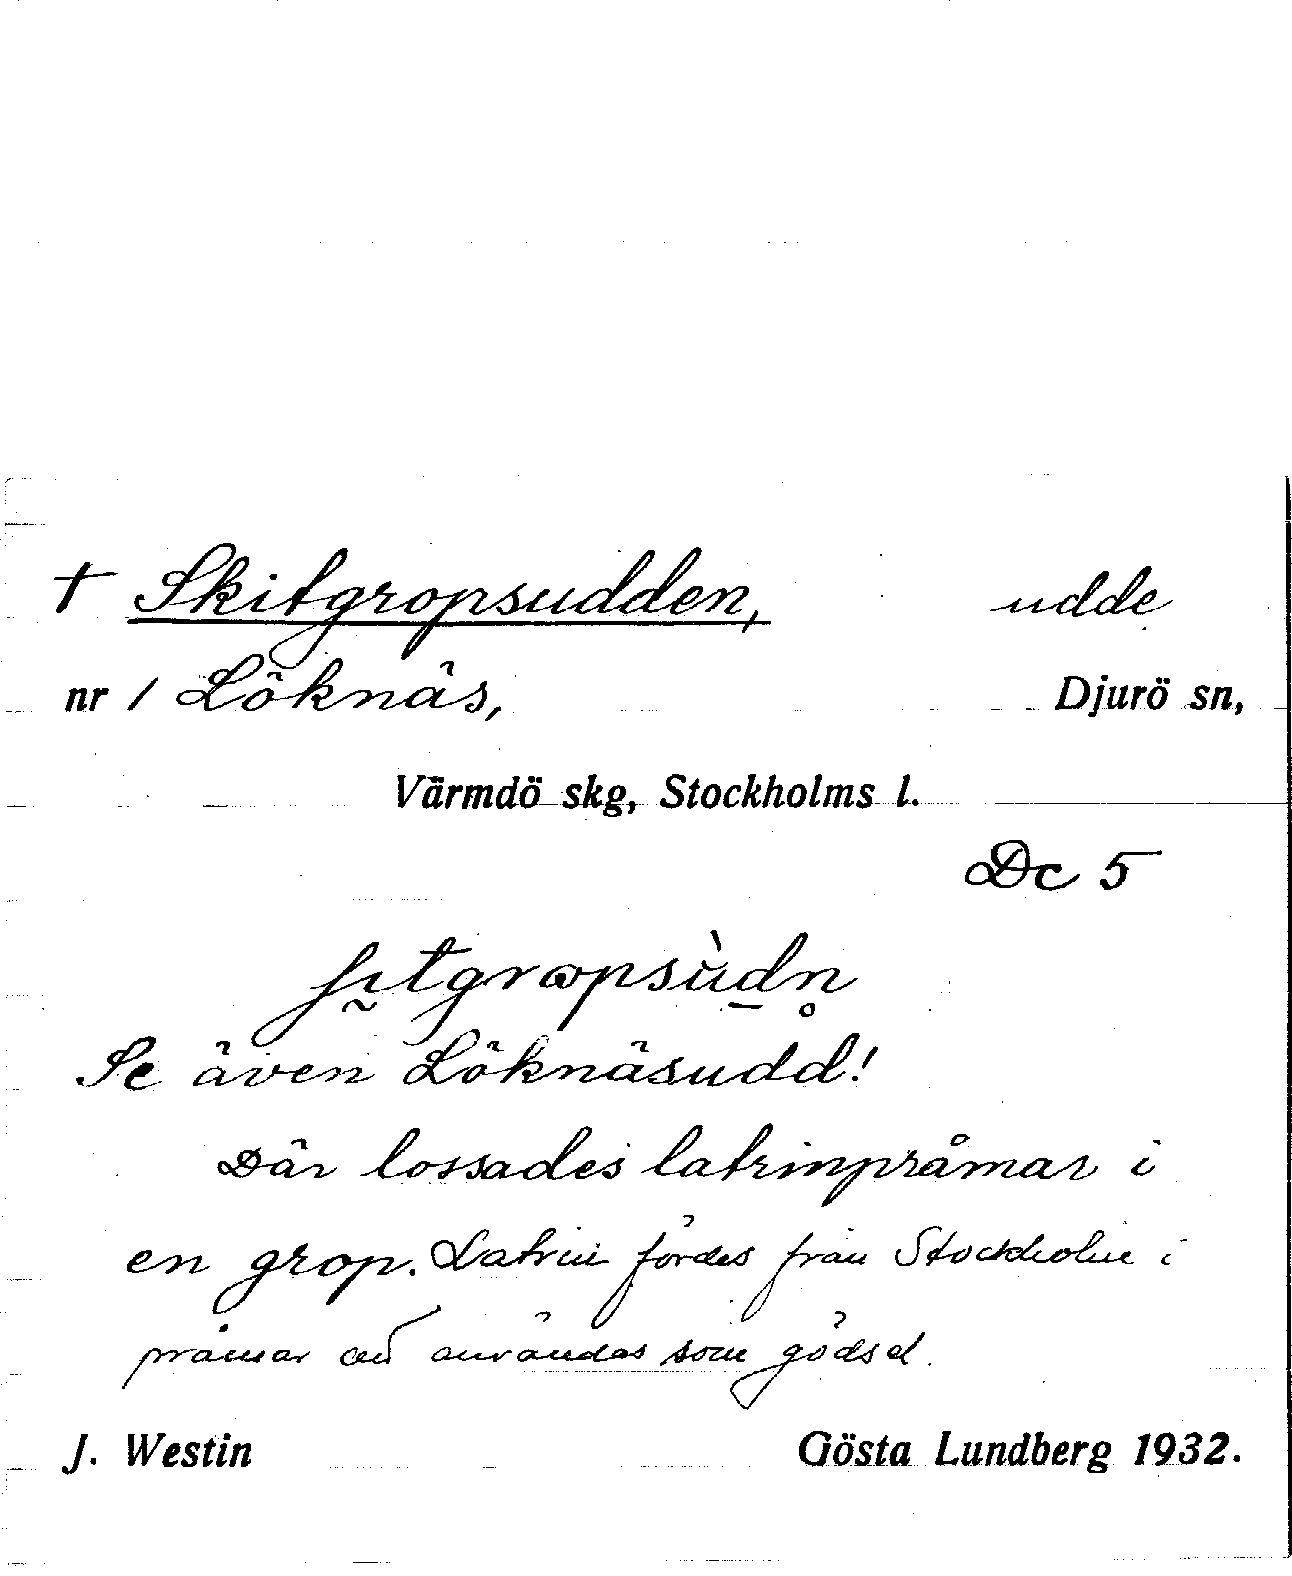 † Skitgropsudden, udde
nr 1 Löknäs, Djurö sn,
Värmdö skg, Stockholms l.
Dc 5
Se även Löknäsudd!
Där lossades latrinpråmar i
en grop. Latrin fördes från Stockholm i
pråmar att användas som gödsel.
J. Westin Gösta Lundberg 1932.